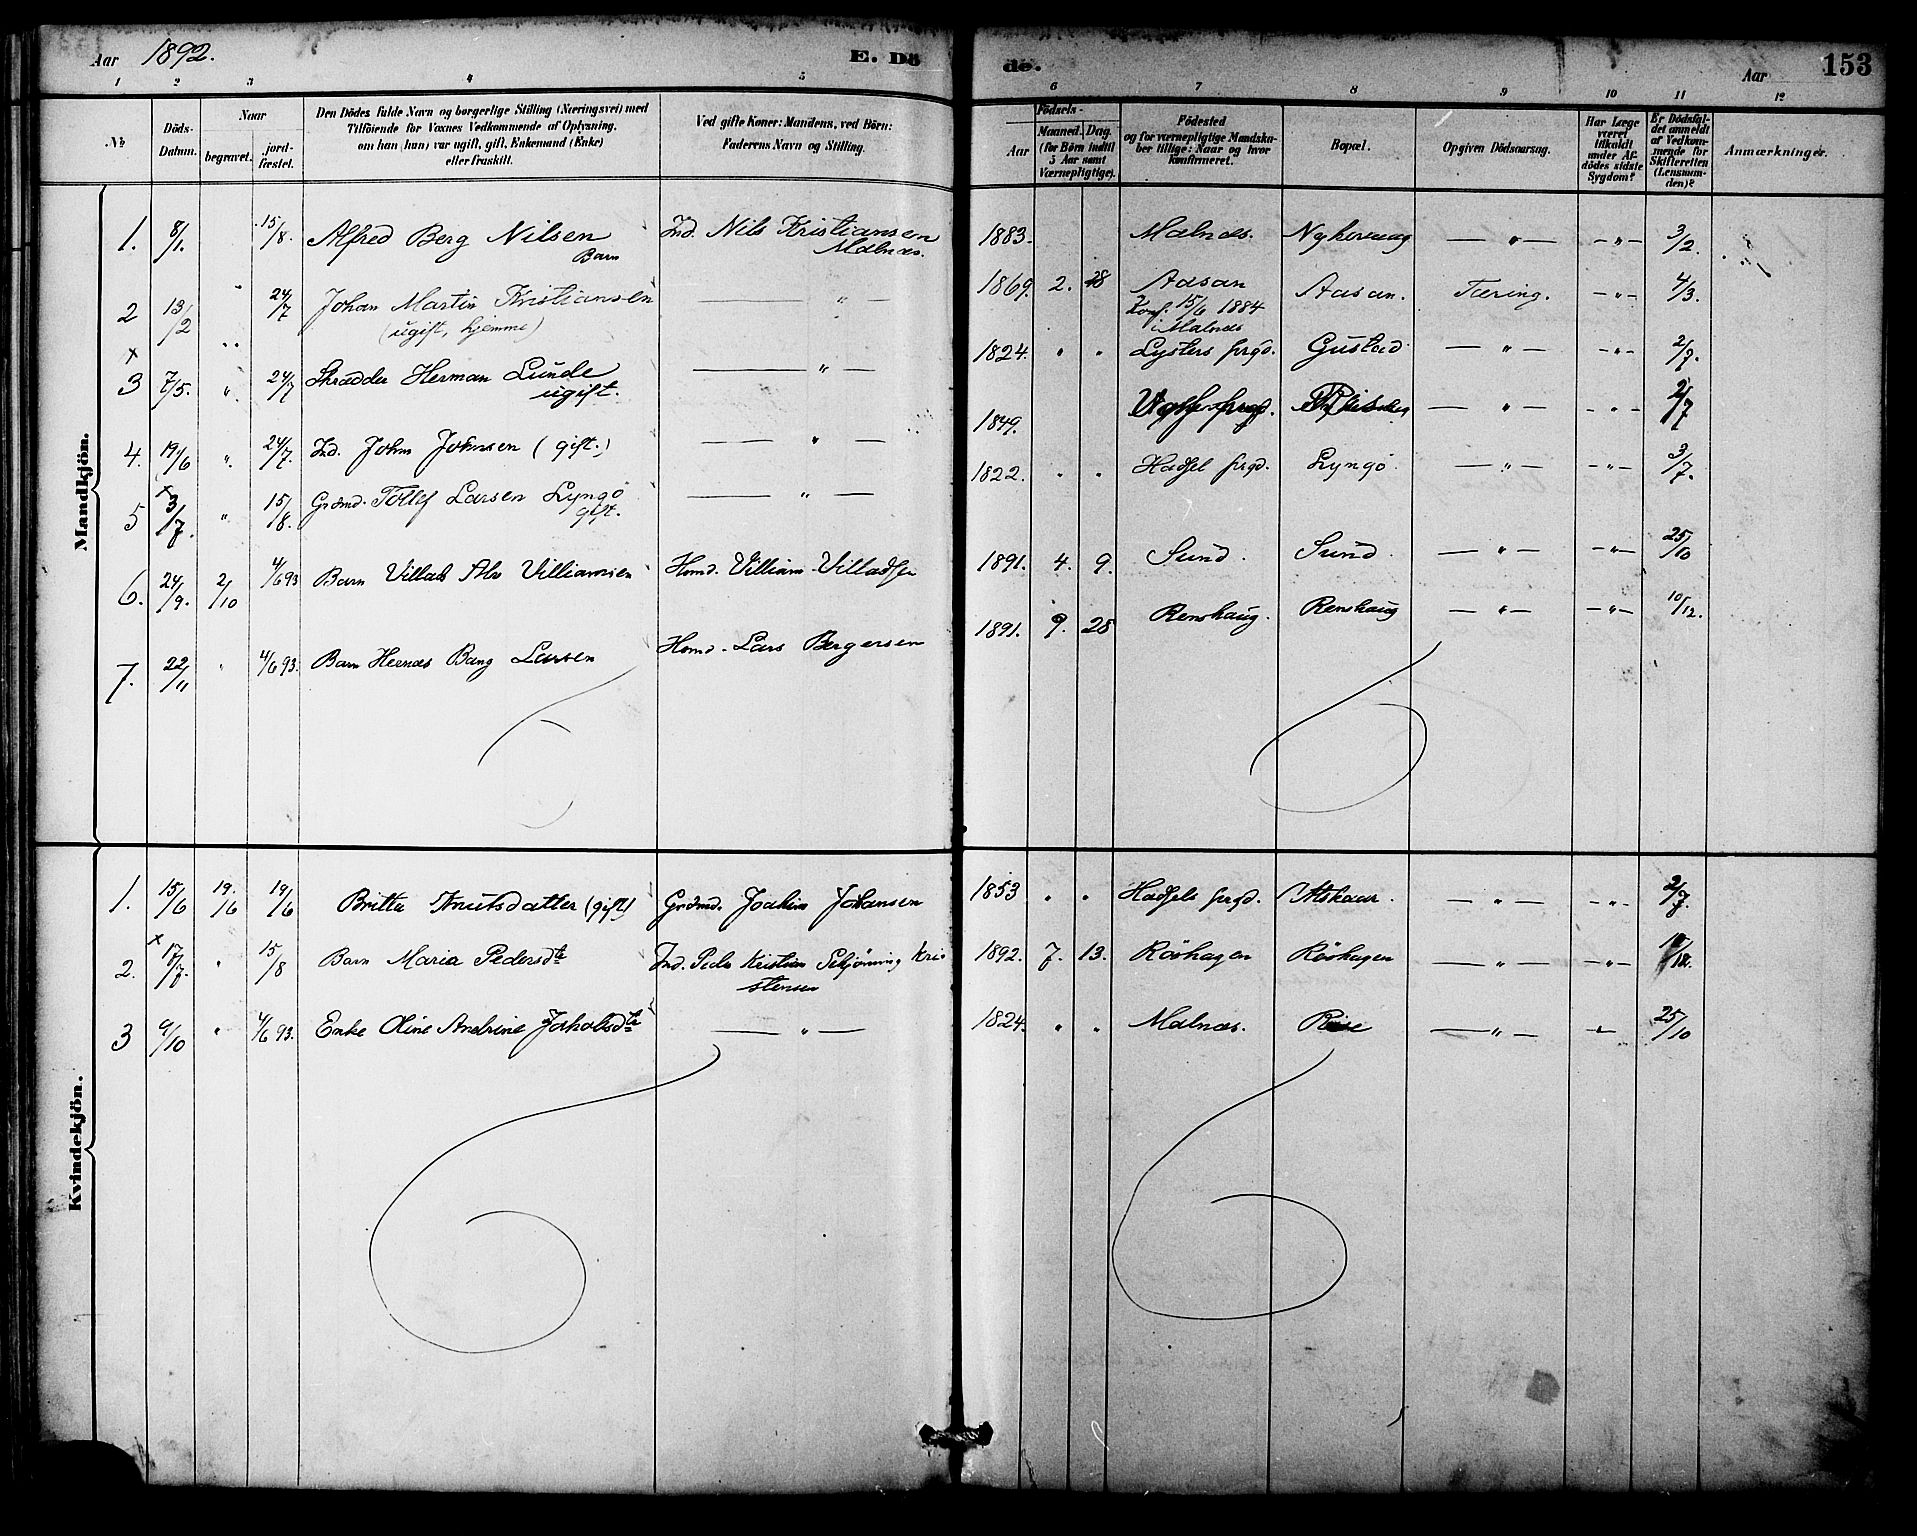 Aar 1892. E. Dö de. Aar 153
1 2 3 4 5 6 7 8 9 10 11 12
№ Döds-Datum. Naar begravet. jord-fæstet. Den Dödes fulde Navn og borgerlige Stilling (Næringsvei) med Tilföiende for Voxnes Vedkommende af Oplysning, om han (hun) var ugift, gift, Enkemand (Enke) eller fraskilt. Ved gifte Koner: Mandens, ved Börn: Faderens Navn og Stilling. Aar Födsels- Maaned. Dag. (for Börn indtil 5 Aar samt Værnepligtige). Födested og for værnepligtige Mandskaber tillige: Naar og hvor Konfirmeret. Bopæl. Opgiven Dödsaarsag. Har Læge været tilkaldt under Afdödes sidste Sygdom? Er Dödsfaldet anmeldt af Vedkommende for Skifteretten (Lensmanden)? Anmærkninger.
Mandkjön.
1. 8/1. 15/8. Alfred Berg Nilsen Ind. Nils Kristiansen 1883. Malnæs. — " — — " — 3/2.
Barn Malnæs.
2 13/2 " 24/7 Johan Martin Kristiansen — " — 1869. 2. 28 Aasan Aasan. Tæring. — " — 4/3.
(ugift, hjemme) Konf. 15/6 1884
i Malnæs
x
3 7/5. " 24/7 Skrædder Herman Lunde — " — 1824. " " Lysters prgd. Gustad — " — — " — 2/7.
ugift.
4. 19/6 " 24/7. Ind. John Johnsen (gift.) — " — 1849. — " — — " — 2/7
x
5 3/7. " 15/8. Grdmd. Tollef Larsen Lyngö — " — 1822. " " Hadsel prgd. Lyngö — " — — " — 3/7.
gift.
6. 24/9. 2/10 4/6 93 Barn Villads Alv Villiamsen Hmd. Villiam Villadsen 1891. 4. 9. Sund. Sund. — " — — " — 25/10
7. 22/11 " 4/6 93. Barn Hernæs Bang Larsen Hmd. Lars Bergersen 1891. 9. 28 Renshaug. Renshaug — " — — " — 10/12.
Kvindekjön.
1. 15/6 19/6 19/6 Britta Knutsdatter (gift) Grdmd. Joakim Johansen 1853 " " Hadsels prgd. Alskaar. — " — — " — 2/7.
x
2. 17/7. " 15/8 Barn Maria Pedersdtr Ind. Peder Kristian Schjönning Kri- 1892. 7. 13. Röshagen Röshagen — " — — " —
stensen
3 9/10 " 4/6 93. Enke Oline Andrine Jakobsdtr — " — 1824. " " Malnæs. Rise — " — " 25/10